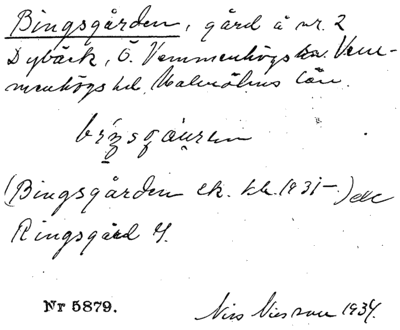 Bingsgården, gård å nr. 2
Dybäck, Ö. Vemmenhögs sn. Vem-
menhögs hd. Malmöhus län.
(Bingsgården ek. kb. 1931–)
Ringsgård
Nr 5879.
Nils Nilsson 1934.